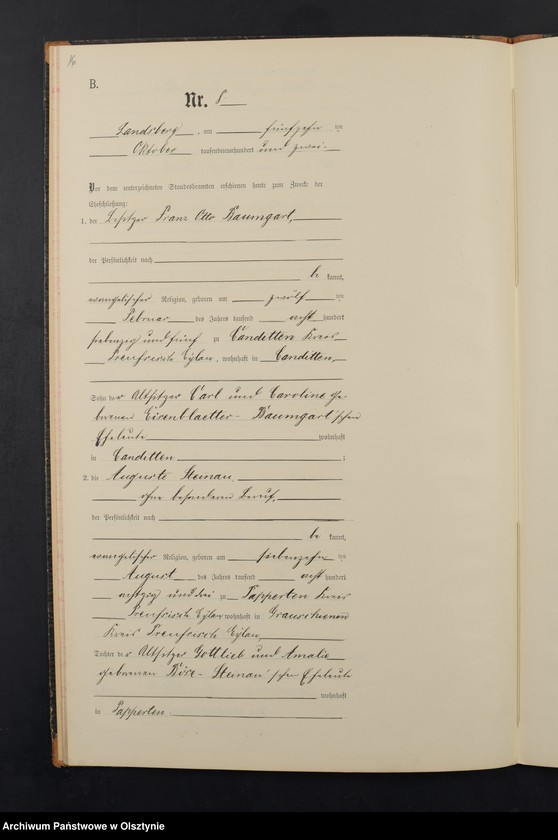 B.
Nr. 8
Landsberg, am fünfzehn ten
Oktober tausendneunhundert und zwei.
Vor dem unterzeichneten Standesbeamten erschienen heute zum Zwecke der
Eheschließung:
1. der Besitzer Franz Otto Baumgart,
der Persönlichkeit nach
be kannt,
evangelischer Religion, geboren am zwölf ten
Februar des Jahres tausend acht hundert
siebenzig und fünf zu Canditten Kreis
Preußisch Eylau, wohnhaft in Canditten,
Sohn der Altsitzer Carl und Caroline ge-
borenen Eisenblaetter- Baumgart'schen
Eheleute wohnhaft
in Canditten ;
2. die Auguste Steinau,
ohne besonderen Beruf,
der Persönlichkeit nach
be kannt,
evangelischer Religion, geboren am siebenzehn ten
August des Jahres tausend acht hundert
achtzig und drei zu Papperten Kreis
Preußisch Eylau, wohnhaft in Grauschienen
Kreis Preußisch Eylau,
Tochter der Altsitzer Gottlieb und Amalie
geborenen - Steinau'schen Eheleute
wohnhaft
in Papperten.
Archiwum Państwowe w Olsztynie